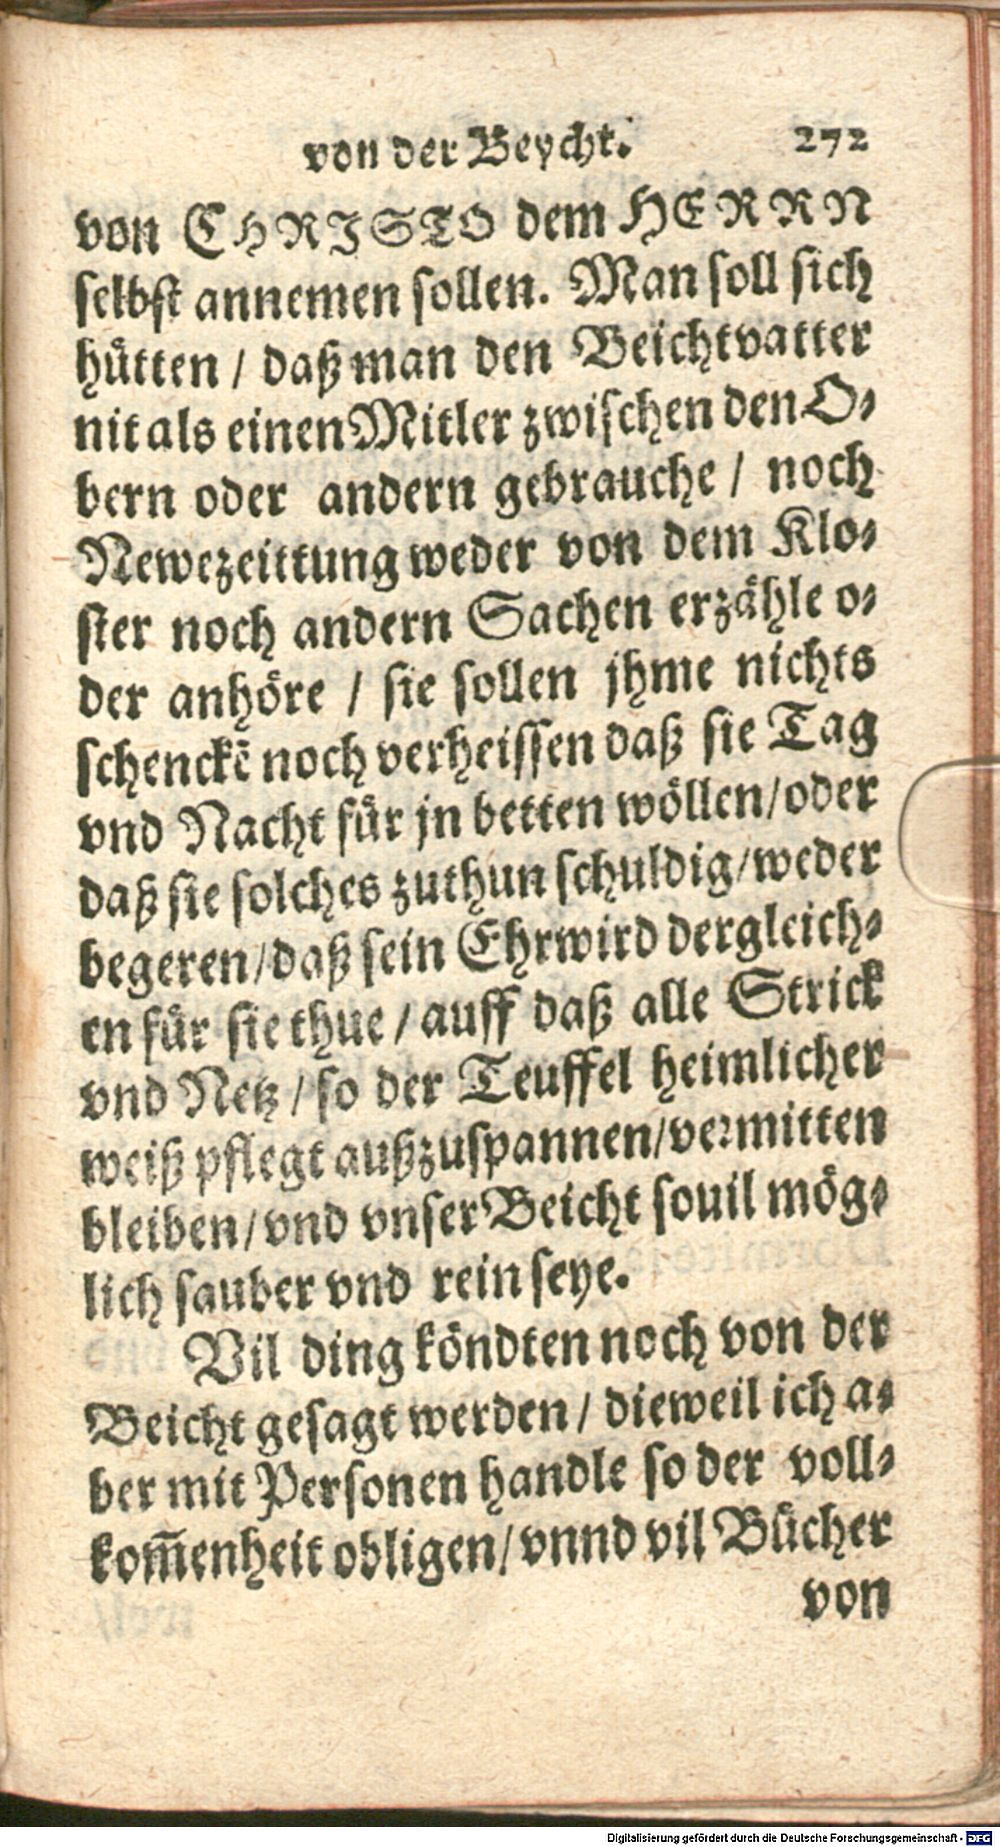 von der Beycht. 272
von CHRISTO dem HERRN
selbst annemen sollen. Man soll sich
hütten / daß man den Beichtvatter
nit als einen Mitler zwischen den O-
bern oder andern gebrauche / noch
Newezeittung weder von dem Klo-
ster noch andern Sachen erzähle o-
der anhöre / sie sollen jhme nichts
schenckē noch verheissen daß sie Tag
vnd Nacht für jn betten wöllen/oder
daß sie solches zuthun schuldig/weder
begeren/daß sein Ehrwird dergleich-
en für sie thue / auff daß alle Strick
vnd Netz / so der Teuffel heimlicher
weiß pflegt außzuspannen/vermitten
bleiben/vnd vnser Beicht souil mög-
lich sauber vnd rein seye.
Vil ding köndten noch von der
Beicht gesagt werden / dieweil ich a-
ber mit Personen handle so der voll-
kom̃enheit obligen/vnnd vil Bücher
von
Digitalisierung gefördert durch die Deutsche Forschungsgemeinschaft - DFG